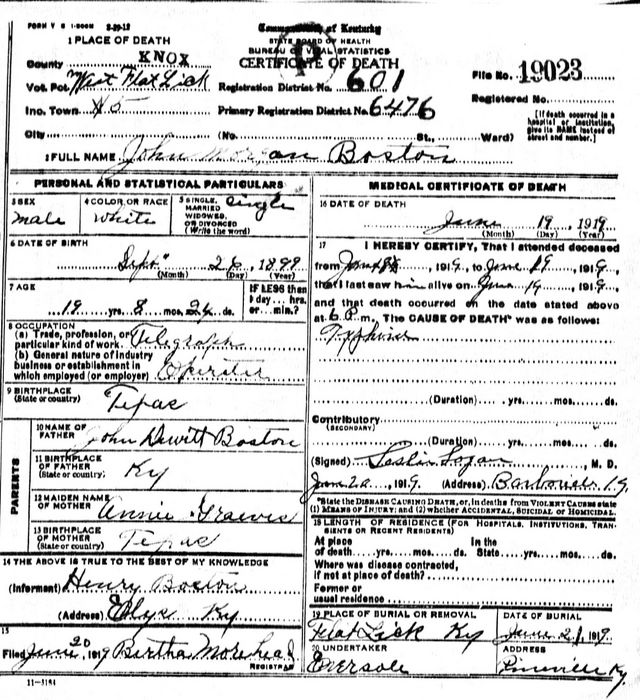 FORM V S 1-500M 3-29-12
Commonwealth of Kentucky
STATE BOARD OF HEALTH
BUREAU OF VITAL STATISTICS
CERTIFICATE OF DEATH
1 PLACE OF DEATH
County KNOX
Vot. Pct. West Flat Lick
Inc. Town No 5
City
Registration District No. 601
Primary Registration District No. 6476
(No. St., Ward)
File No. 19023
Registered No.
[If death occurred in a hospital or institution, give its NAME instead of street and number.]
2 FULL NAME John Morgan Boston
PERSONAL AND STATISTICAL PARTICULARS
3 SEX
male
4 COLOR OR RACE
White
5 SINGLE, MARRIED WIDOWED, OR DIVORCED (Write the word)
Single
6 DATE OF BIRTH
Sept 26, 1899
(Month) (Day) (Year)
7 AGE
19 yrs. 8 mos. ds.
IF LESS than 1 day... hrs. or... min.?
8 OCCUPATION
(a) Trade, profession, or particular kind of work. Telegraph
(b) General nature of industry business or establishment in which employed (or employer) Operater
9 BIRTHPLACE
(State or country) Texas
PARENTS
10 NAME OF FATHER John Dewitt Boston
11 BIRTHPLACE OF FATHER (State or country) Ky
12 MAIDEN NAME OF MOTHER Annie
13 BIRTHPLACE OF MOTHER (State or country) Texas
14 THE ABOVE IS TRUE TO THE BEST OF MY KNOWLEDGE
(Informant) Henry Boston
(Address) Elys Ky
15
Filed June 20 1919 Bertha Morehead
REGISTRAR
11-3184
MEDICAL CERTIFICATE OF DEATH
16 DATE OF DEATH
June 19, 1919
(Month) (Day) (Year)
17 I HEREBY CERTIFY, That I attended deceased
from , 1919, to June 19, 1919,
that I last saw him alive on June 19, 1919,
and that death occurred on the date stated above
at 6 P.m. The CAUSE OF DEATH* was as follows:
(Duration) yrs. mos. ds.
Contributory
(SECONDARY)
(Duration) yrs. mos. ds.
(Signed) Leslie Logan, M. D.
June 20, 1919. (Address)
*State the DISEASE CAUSING DEATH, or, in deaths from VIOLENT CAUSES state (1) MEANS OF INJURY; and (2) whether ACCIDENTAL, SUICIDAL or HOMICIDAL.
18 LENGTH OF RESIDENCE (FOR HOSPITALS, INSTITUTIONS, TRANSIENTS OR RECENT RESIDENTS)
At place of death yrs. mos. ds. In the State yrs. mos. ds.
Where was disease contracted,
if not at place of death?
Former or
usual residence
19 PLACE OF BURIAL OR REMOVAL
Flat Lick Ky
DATE OF BURIAL
June 21 1919
20 UNDERTAKER
Eversole
ADDRESS
Pineville Ky.